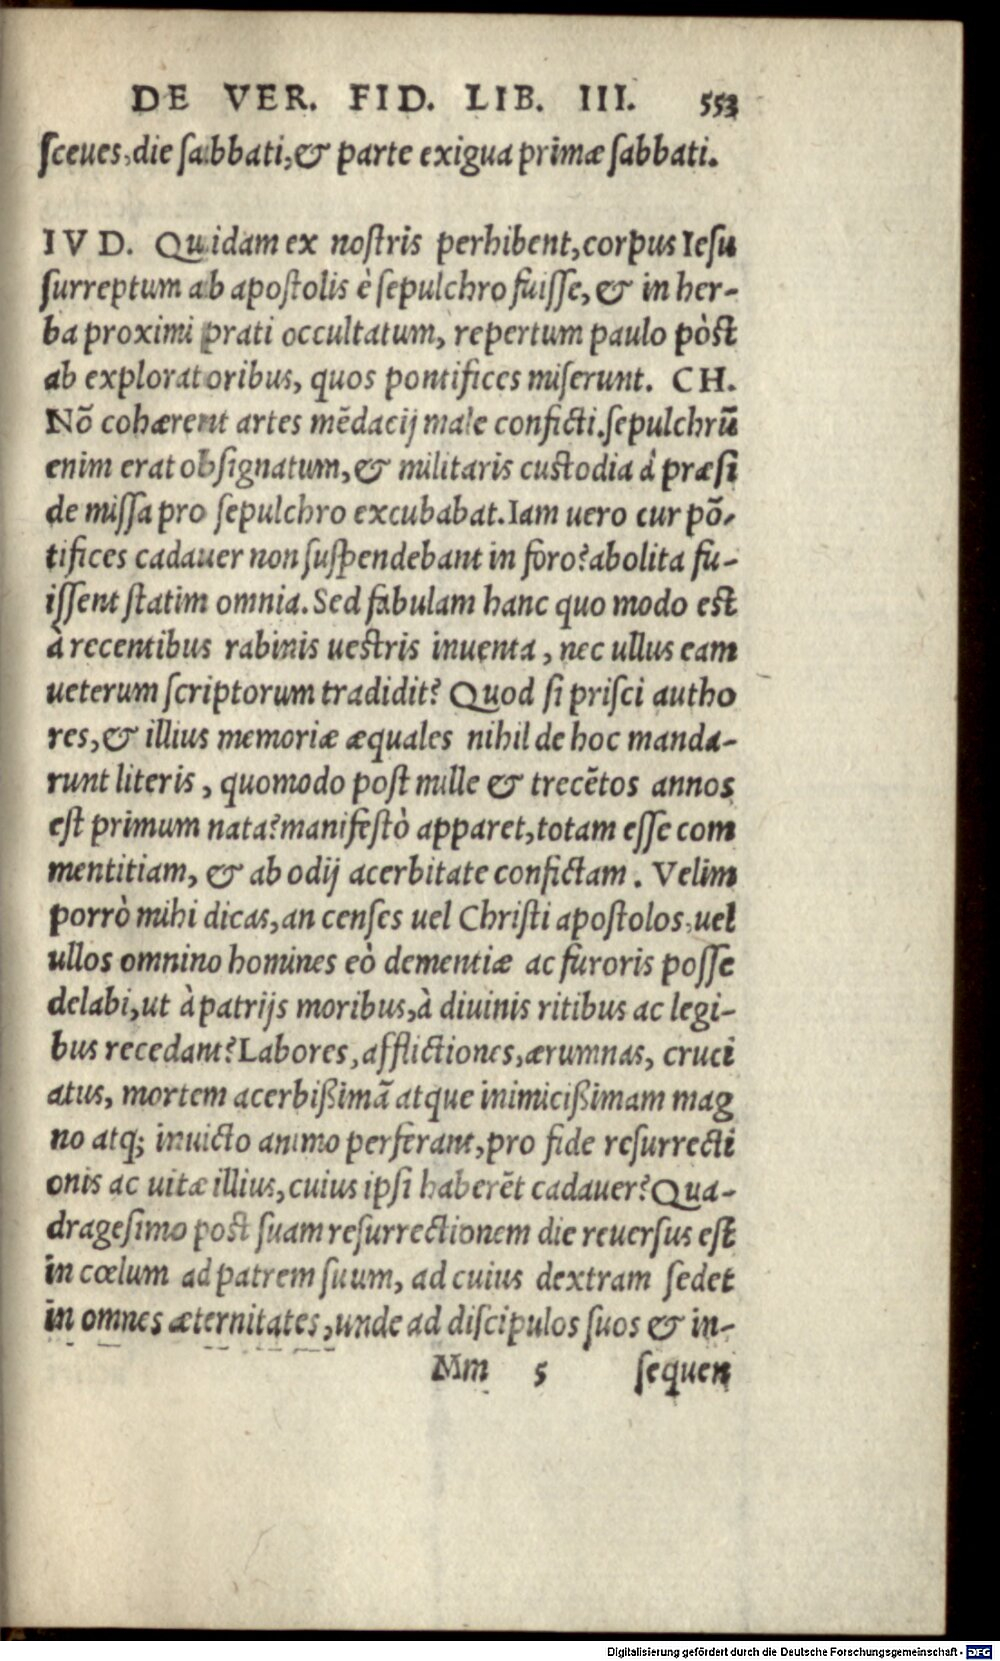 DE VER. FID. LIB. III. 553
ſceues, die ſabbati, & parte exigua primæ ſabbati.
IVD. Quidam ex noſtris perhibent, corpus Ieſu
ſurreptum ab apoſtolis è ſepulchro fuiſſe, & in her-
ba proximi prati occultatum, repertum paulo pòſt
ab exploratoribus, quos pontifices miſerunt. CH.
Nõ cohærent artes mẽdacij male conficti. ſepulchrũ
enim erat obſignatum, & militaris cuſtodia à præſi
de miſſa pro ſepulchro excubabat. Iam uero cur põ-
tifices cadauer non ſuſpendebant in foro? abolita fu-
iſſent ſtatim omnia. Sed fabulam hanc quo modo eſt
à recentibus rabinis ueſtris inuenta, nec ullus eam
ueterum ſcriptorum tradidit? Quod ſi priſci autho
res, & illius memoriæ æquales nihil de hoc manda-
runt literis, quomodo poſt mille & trecẽtos annos
eſt primum nata? manifeſtò apparet, totam eſſe com
mentitiam, & ab odij acerbitate confictam. Velim
porrò mihi dicas, an cenſes uel Chriſti apoſtolos, uel
ullos omnino homines eò dementiæ ac furoris poſſe
delabi, ut à patrijs moribus, à diuinis ritibus ac legi-
bus recedant? Labores, afflictiones, ærumnas, cruci
atus, mortem acerbißimã atque inimicißimam mag
no atq; inuicto animo perferant, pro fide reſurrecti
onis ac uitæ illius, cuius ipſi haberẽt cadauer? Qua-
drageſimo poſt ſuam reſurrectionem die reuerſus eſt
in cœlum ad patrem ſuum, ad cuius dextram ſedet
in omnes æternitates, unde ad diſcipulos ſuos & in-
Mm 5 ſequen
Digitalisierung gefördert durch die Deutsche Forschungsgemeinschaft - DFG